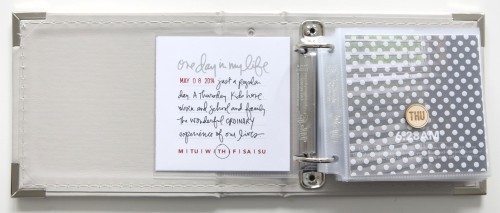 one day in my life
MAY 08 2014 just a regular
day. A Thursday. Kids have
work and school and family
The wonderful ORDINARY
experience of our lives
M | TU | W | TH | F | SA | SU
THU
6:28AM